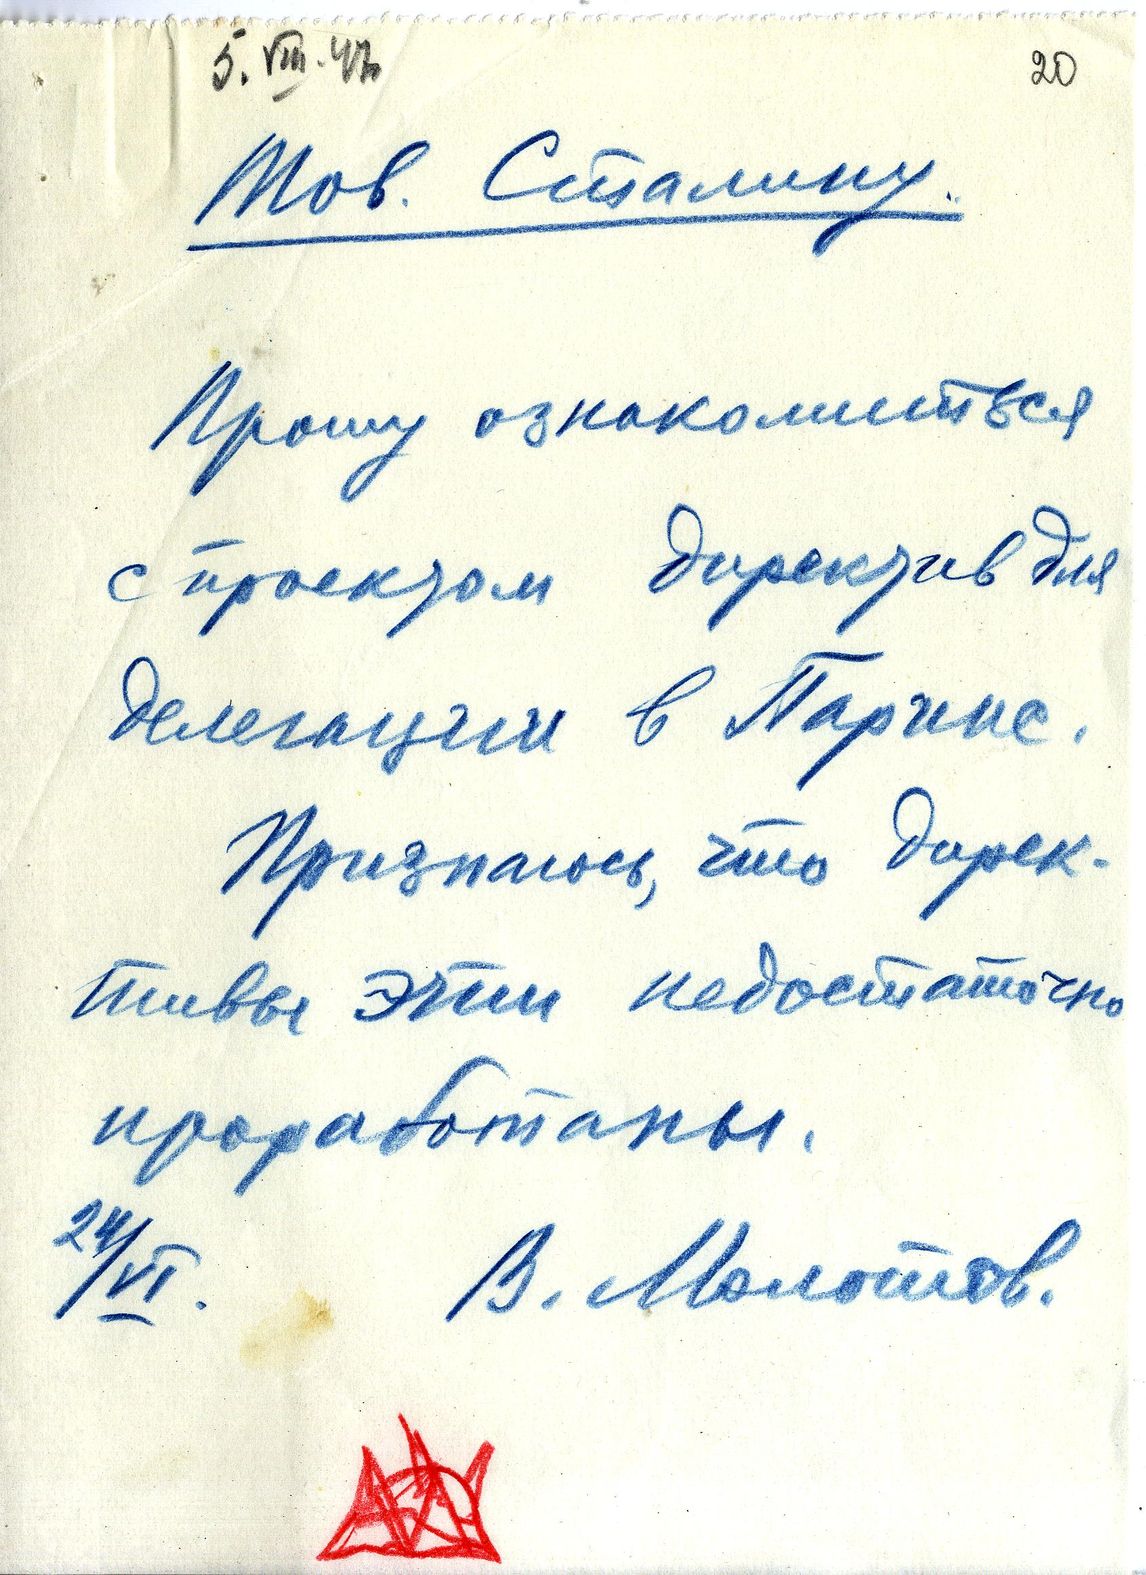 5.VIII.47
20
Тов. Сталину.
Прошу ознакомиться
с проектом директив для
делегации в Париже.
Признаюсь, что дирек-
тивы эти недостаточно
проработаны.
24/VI.
В. Молотов.